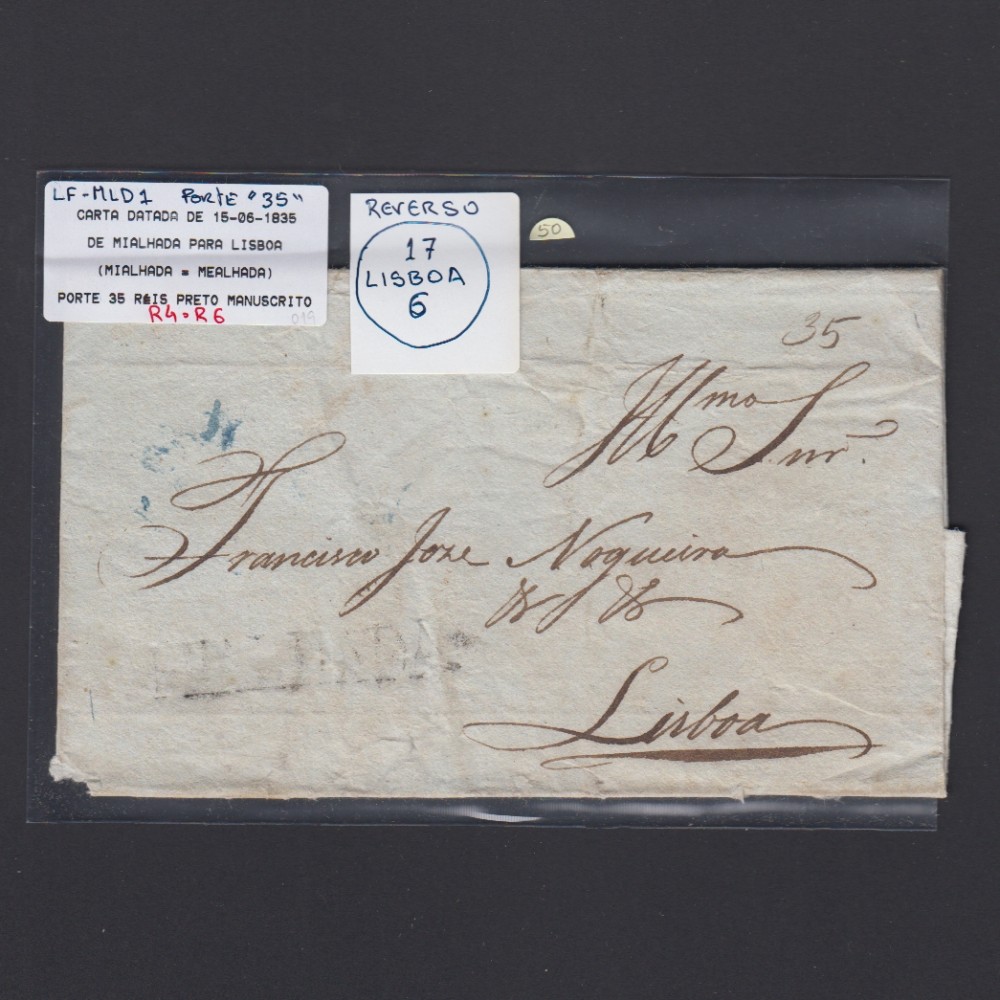 LF-MLD1 PORTE "35"
CARTA DATADA DE 15-06-1835
DE MIALHADA PARA LISBOA
(MIALHADA = MEALHADA)
PORTE 35 REIS PRETO MANUSCRITO
R4 = R6
019
REVERSO
17
LISBOA
6
50
35
Illmo Snr.
Francisco Joze Nogueira
&. &.
Lisboa